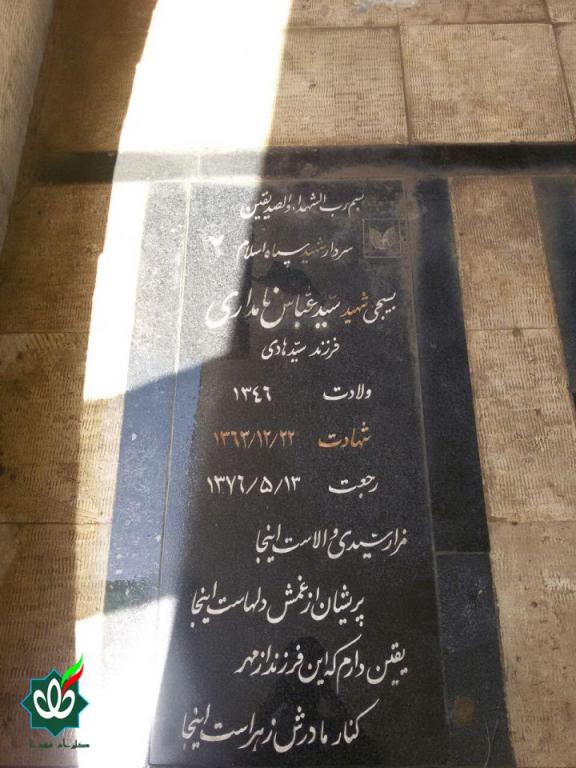 بسم رب الشهداء والصدیقین
سردار شهید سپاه اسلام
بسیجی شهید سیّد عبّاس نامداری
فرزند سیّد هادی
ولادت ۱۳٤٦
شهادت ۱۳٦۳/۱۲/۲۲
رجعت ۱۳۷٦/۵/۱۳
مزار سیّدی والاست اینجا
پریشان از غمش دلهاست اینجا
یقین دارم که این فرزند از مهر
کنار مادرش زهراست اینجا